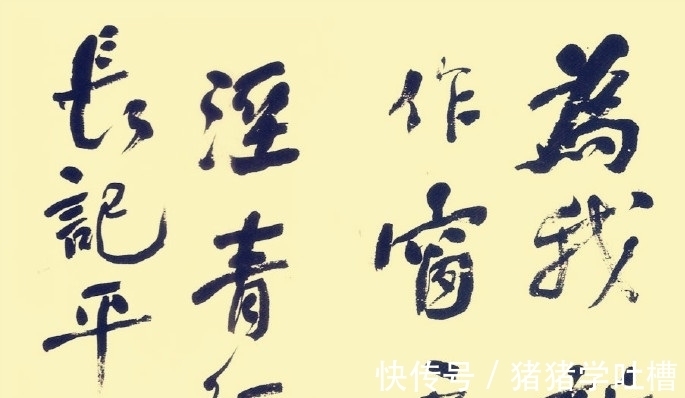 為我
作窗
溼青
長記平
快传号 / 猪猪学吐槽